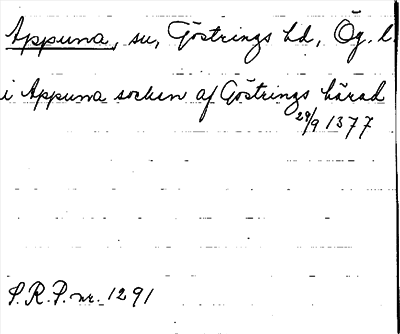 Appuna, sn, Göstrings hd, Ög. l
i Appuna socken af Göstrings härad
28/9 1377
S.R.P. nr. 1291